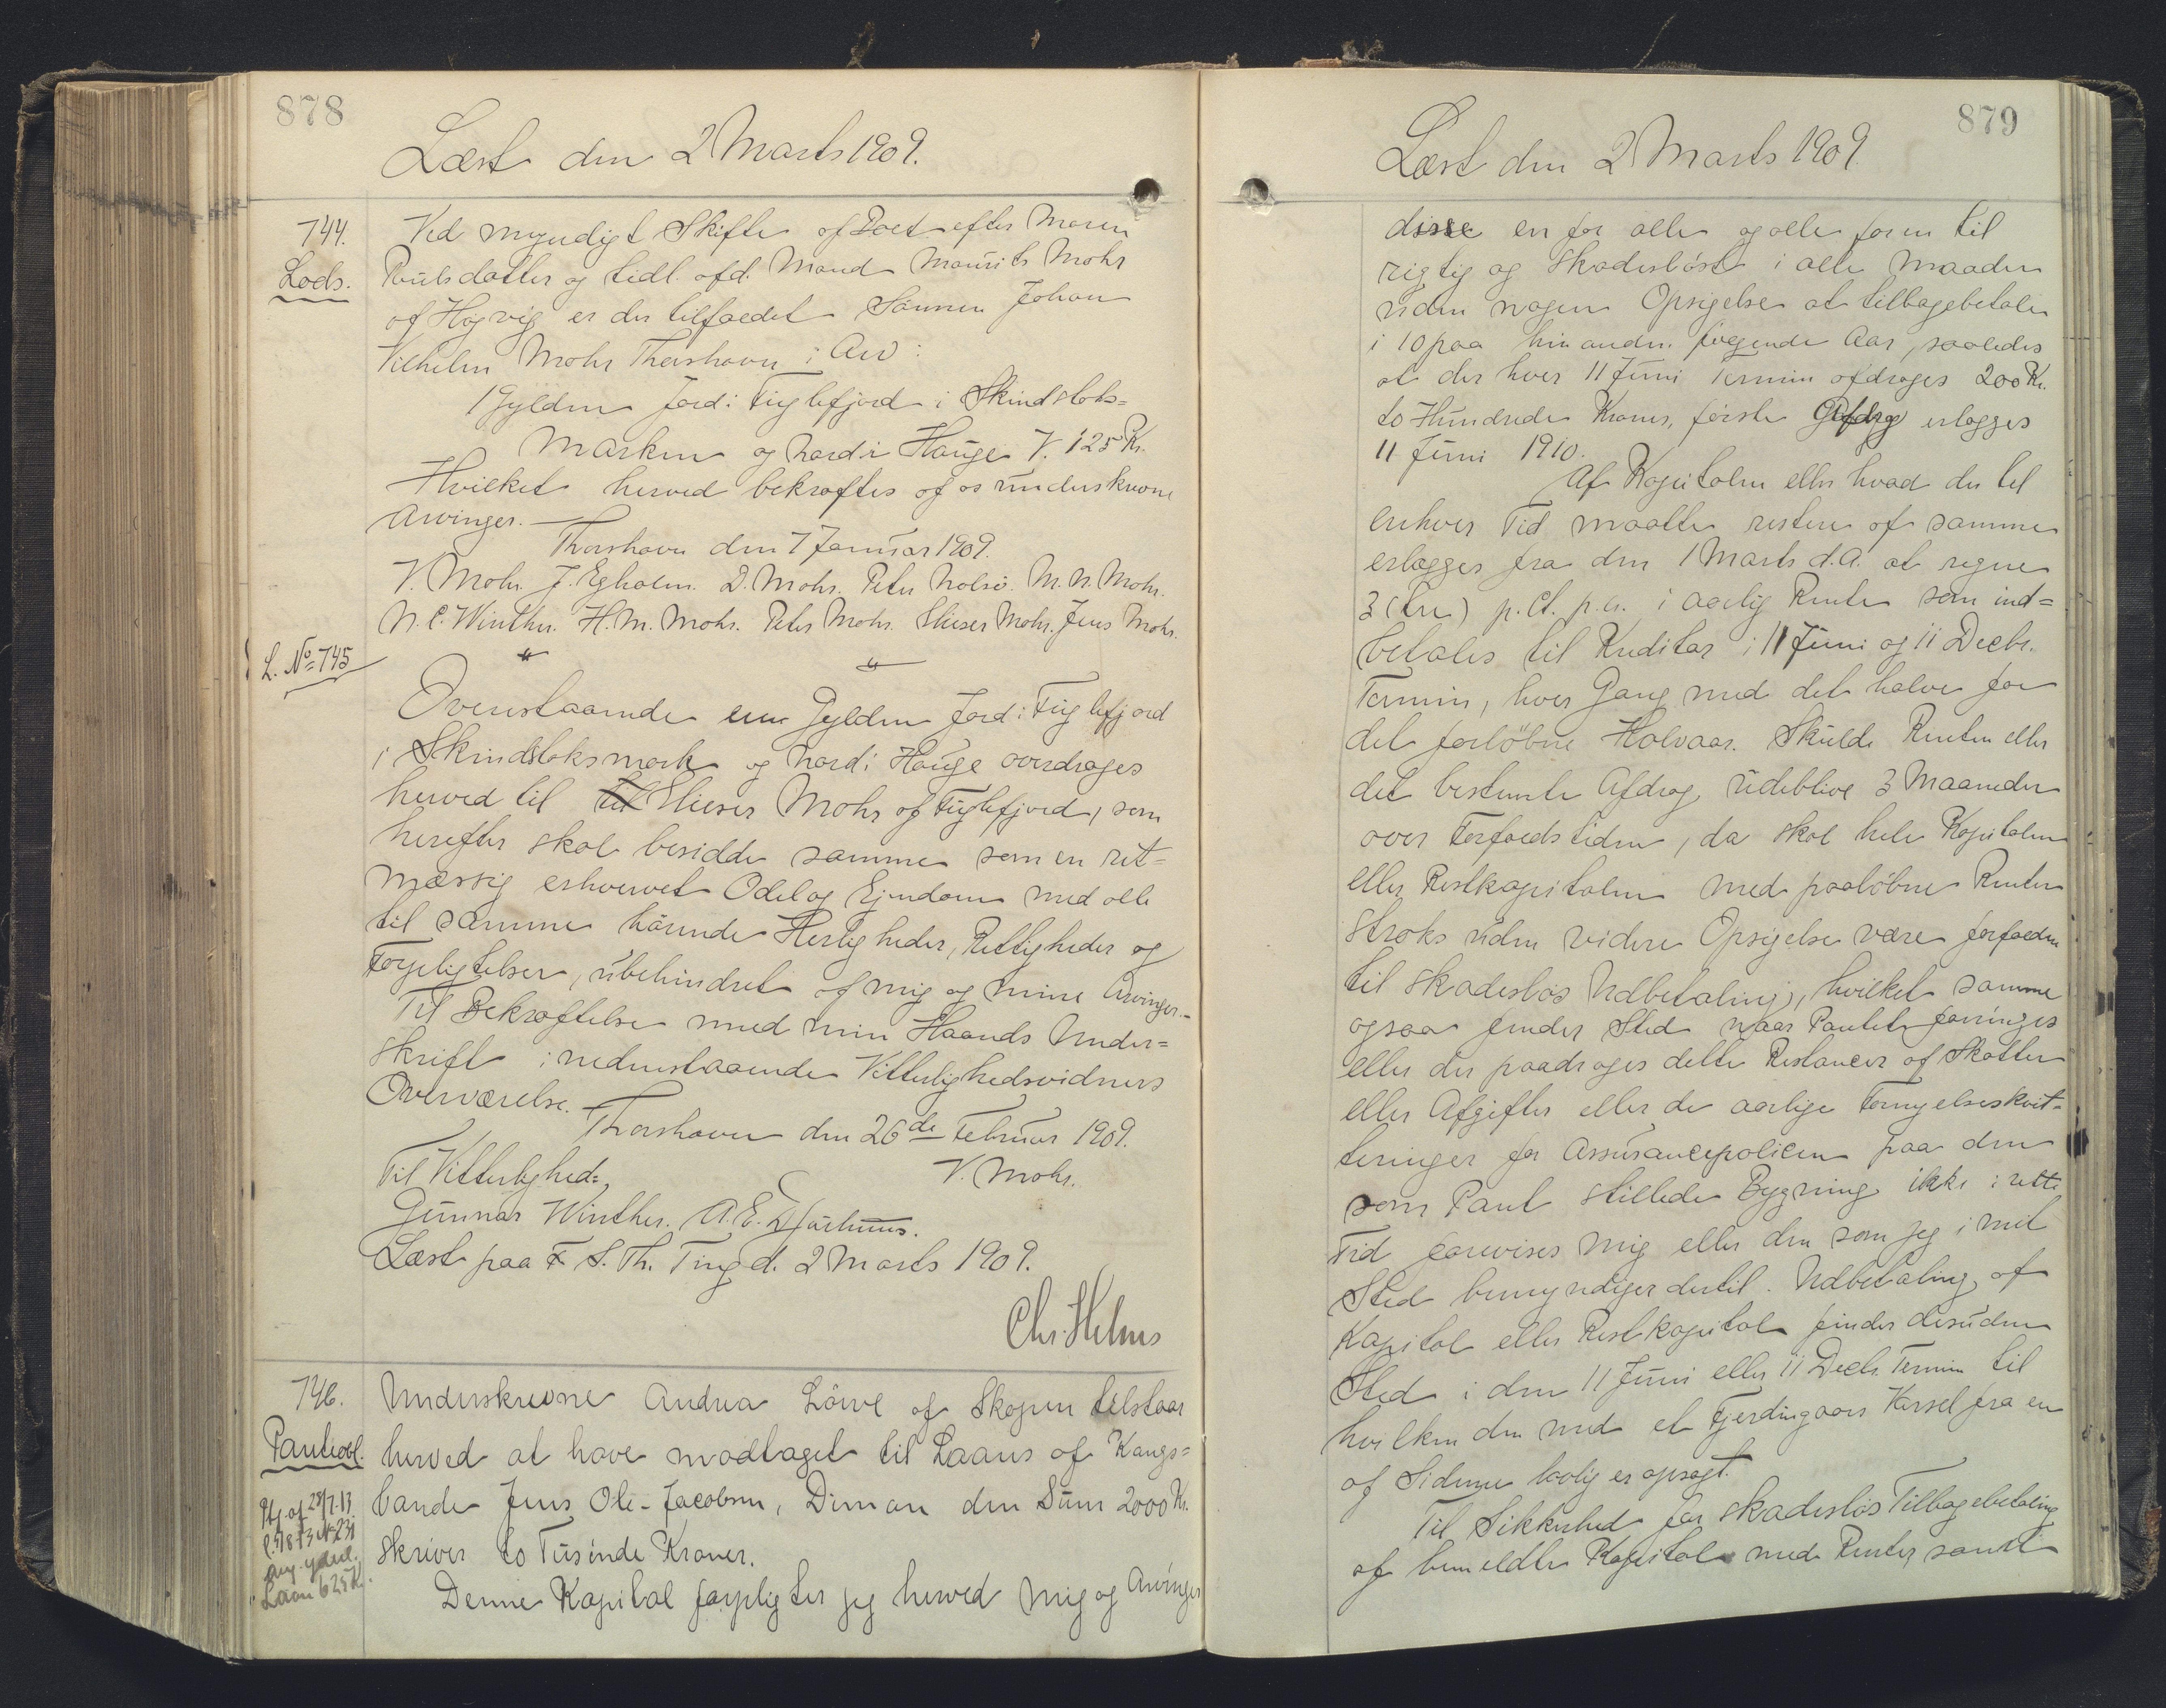 878
Læst den 2 Marts 1909.
744. Ved myndigt Skifte af Boet efter Maren
Lods. Poulsdatter og tidl. afd. Mand Maurits Mohr
af Høgvig er der tilfaldet Sönnen Johan
Vilhelm Mohr Thorshavn i Arv:
1 Gylden Jord i Fuglefjord i Skindstoks=
Marken og Nord i Hauge V. 125 Kr.
Hvilket herved bekræftes af os underskrevne
Arvinger.
Thorshavn den 7 Januar 1909.
V. Mohr. J. Egholm. D. Mohr. Peter Nolsø. M. N. Mohr.
N. C. Winther. H. M. Mohr. Peter Mohr. Elieser Mohr. Jens Mohr.
L. No 745
Ovenstaaende een Gylden Jord i Fuglefjord
i Skindstoksmark og Nord i Hauge overdrages
herved til Elieser Mohr af Fuglefjord, som
herefter skal besidde samme som en ret=
mæssig erhvervet Odel og Ejendom med alle
til samme hörende Herligheder, Rettigheder og
Forpligtelser, ubehindret af mig og mine Arvinger.-
Til Bekræftelse med min Haands Under=
skrift i nedenstaaende Vitterlighedsvidners
Overværelse.
Thorshavn den 26de Februar 1909.
Til Vitterlighed: V. Mohr.
Gunnar Winther. A. E. Djurhuus.
Læst paa S. Th. Ting d. 2 Marts 1909.
Chr. Helms
746. Underskrevne Andrea Löwe af Skopen tilstaar
Panteobl. herved at have modtaget til Laans af Kongs=
bonde Jens Ole Jacobsen, Dimon den Sum 2000 Kr.
skriver to Tusinde Kroner.
Denne Kapital forpligter jeg herved mig og Arvinger
Ptg. af 28/7.13
Laan 625 Kr.
879
Læst den 2 Marts 1909
disse en for alle og alle for en til
rigtig og skadesløst i alle Maader
uden nogen Opsigelse at tilbagebetale
i 10 paa hinanden følgende Aar, saaledes
at der hver 11 Juni Termin afdrages 200 Kr.
to Hundrede Kroner, første Afdrag erlægges
11 Juni 1910.
Af Kapitalen eller hvad der til
enhver Tid maatte restere af samme
erlægges fra den 1 Marts d.A. at regne
3 (tre) p. Ct. p.a. i aarlig Rente som ind=
betales til Kreditor i 11 Juni og 11 Decbr.
Termin, hver Gang med det halve for
det forløbne Halvaar. Skulde Renten eller
det bestemte Afdrag udeblive 3 Maaneder
over Forfaldstiden, da skal hele Kapitalen
eller Restkapitalen med paaløbne Renter
straks uden videre Opsigelse være forfalden
til skadesløs Udbetaling, hvilket samme
ogsaa finder Sted naar Pantet forringes
eller der paadrages dette Restancer af Skatter
eller Afgifter eller de aarlige Fornyelseskvit=
teringer for Assurancepolicen paa den
som Pant stillede Bygning ikke i rette
Tid forevises mig eller den som jeg i mit
Sted bemyndiger dertil. Udbetaling af
Kapital eller Restkapital finder desuden
Sted i den 11 Juni eller 11 Decb. Termin til
hvilken den med et Fjerdingaars Varsel fra en
af Siderne lovlig er opsagt.
Til Sikkerhed for skadesløs Tilbagebetaling
af bemeldte Kapital med Renter samt